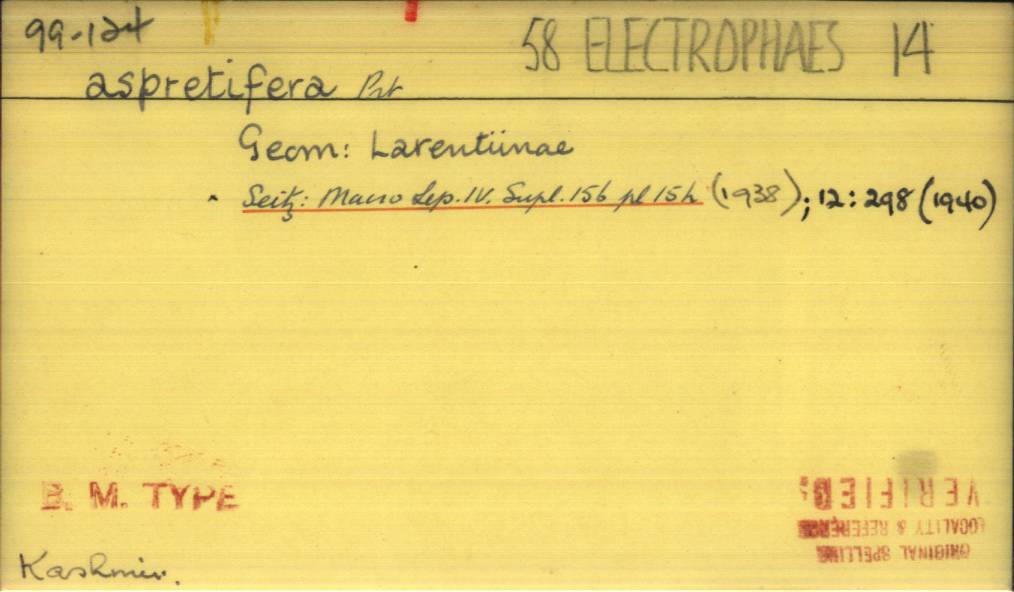 99-124
58 ELECTROPHAES 14
aspretifera Prt
Geom: Larentiinae
Seitz: Macro Lep. IV. Supl. 156 pl 15h (1938); 12:298 (1940)
B. M. TYPE
VERIFIED:
LOCALITY & REFERENCE
ORIGINAL SPELLING
Kashmir.